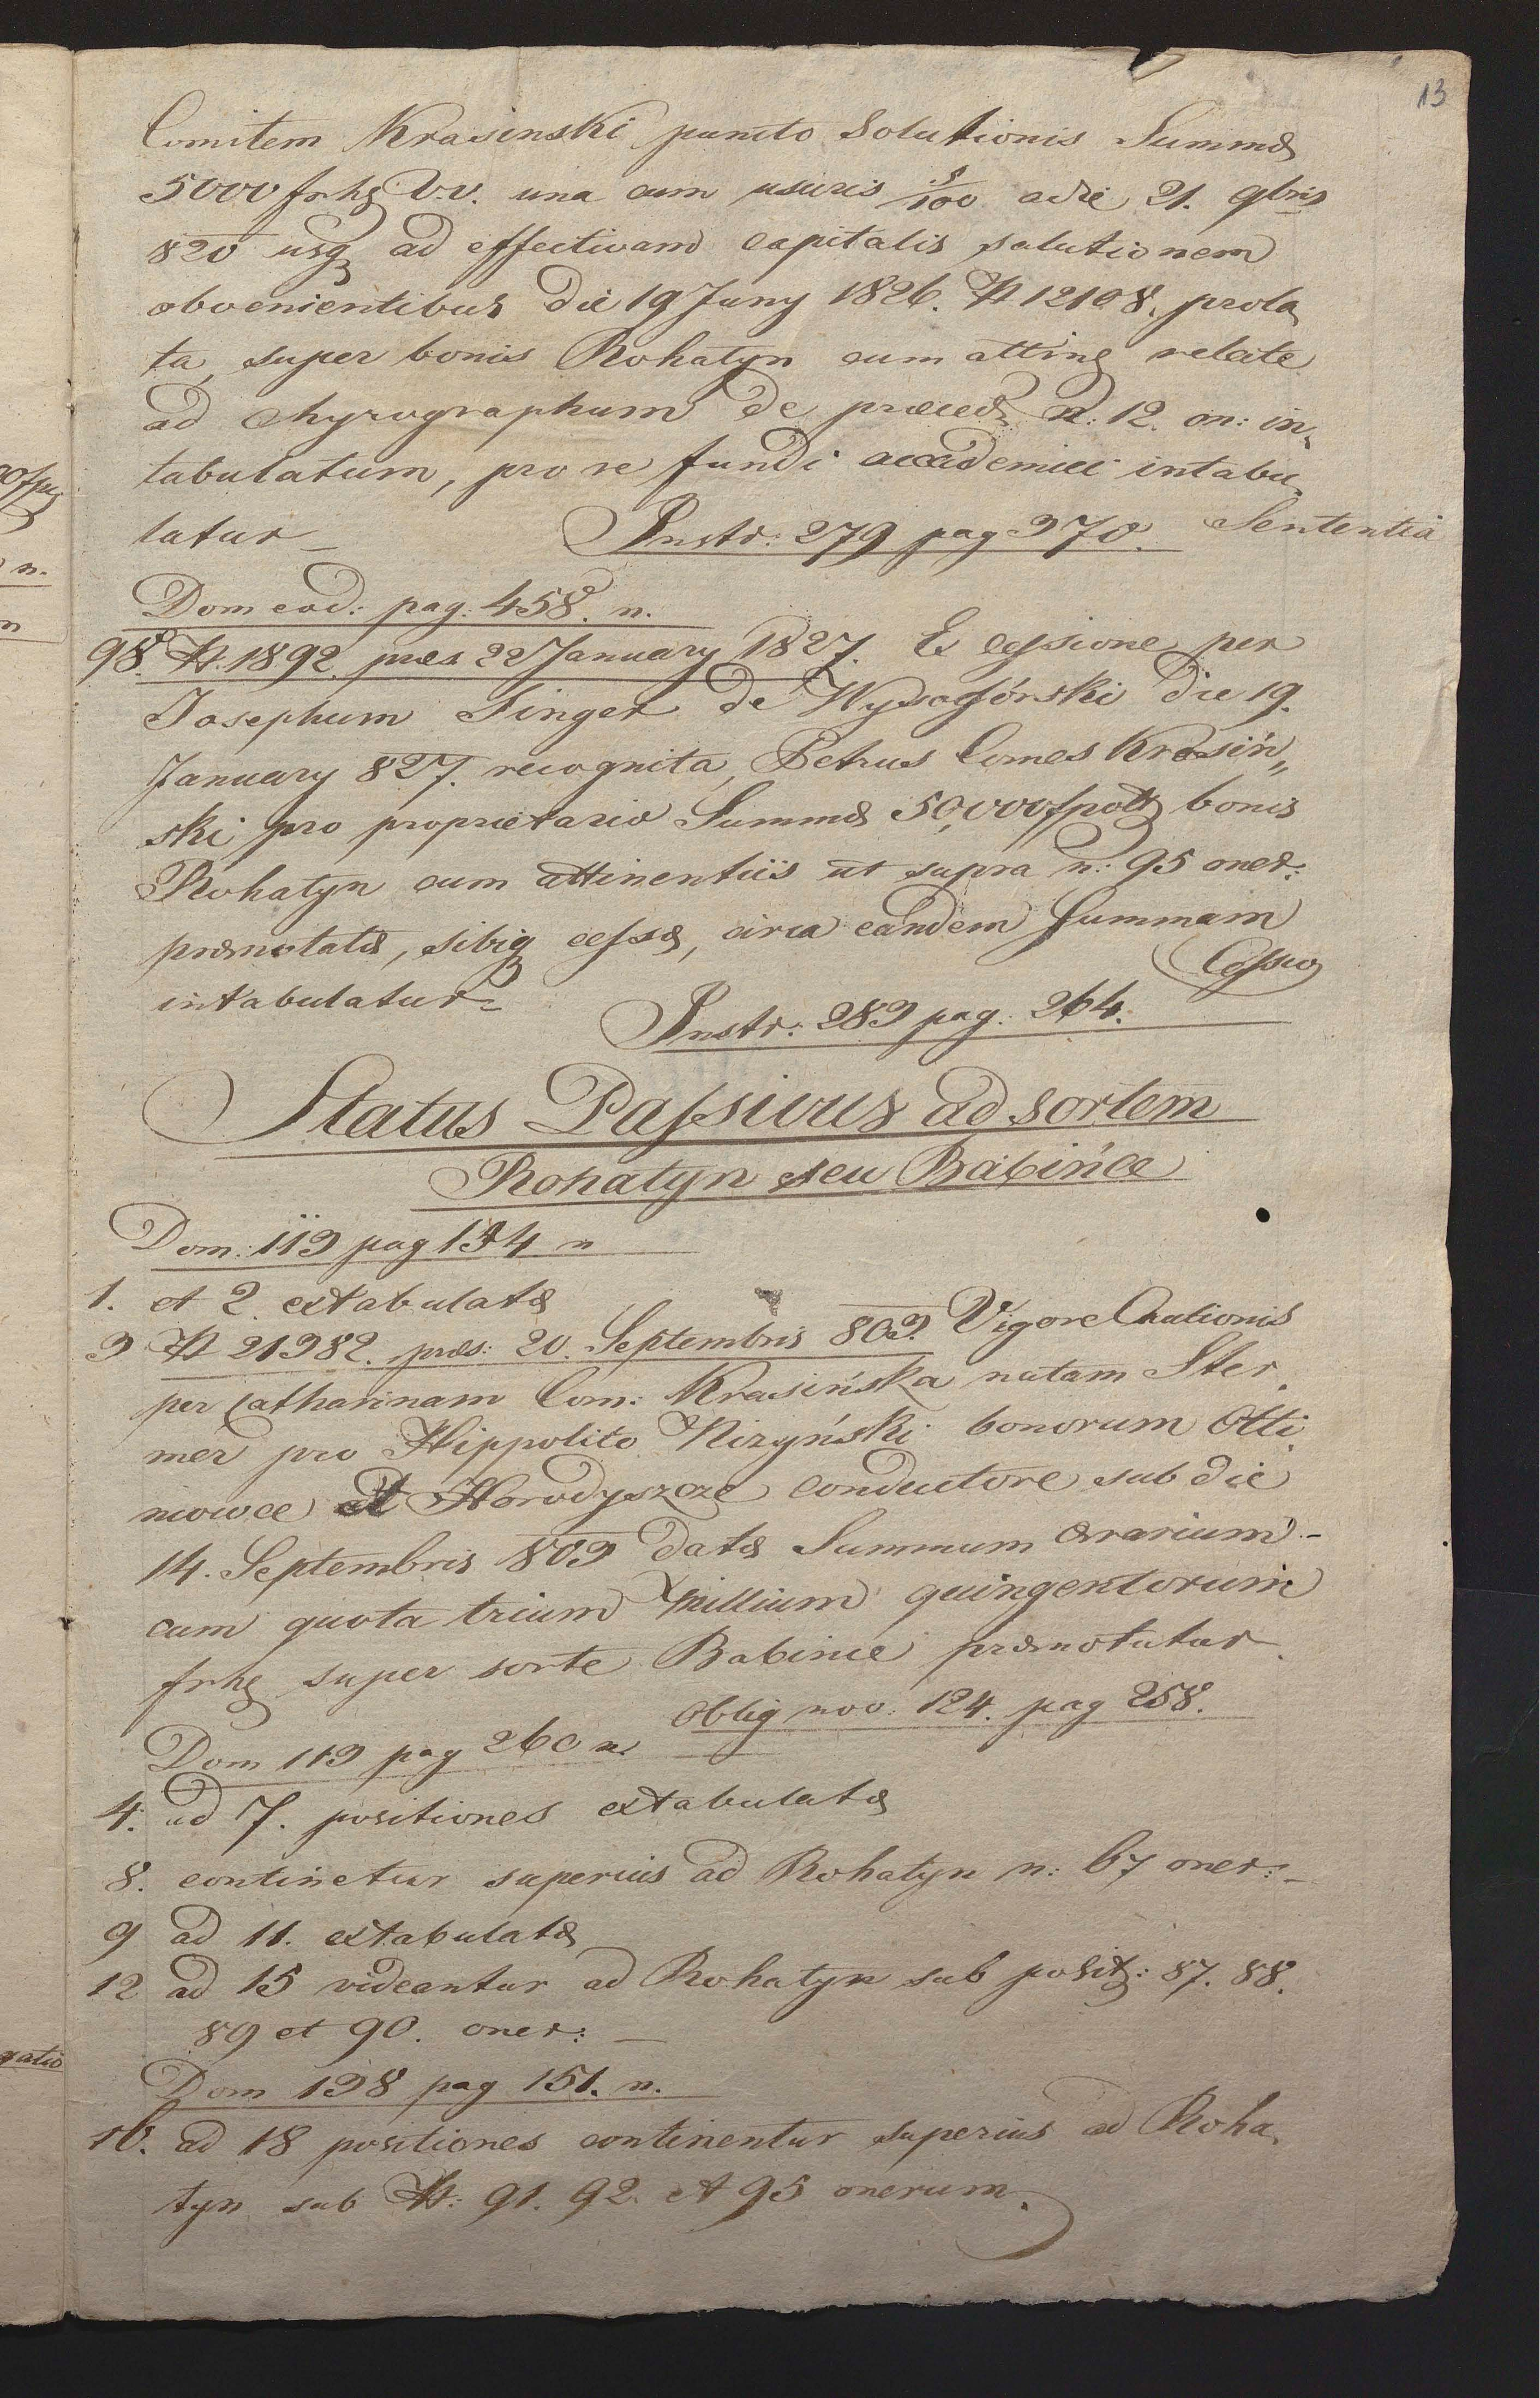 13
Comitem Krasinski puncto Solutionis Summæ
5000 frhg V.V. una cum usuris 5/100 a die 21. 9bris
820 usq ad effectivam capitalis solutionem
obvenientibus die 19 Juny 1826. N 12108. prola
ta, super bonis Rohatyn cum atting relate
ad chyrographum de præced. n: 12. on: in
tabulatum, pro re fundi accademici intabu
latur_ Instr: 279 pag 370. Sententia
Dom eod: pag: 458. n.
98. N. 1892. præs 22 January 1827. Ex cessione per
Josephum Singer de Wysogórski die 19.
January 827. recognita, Petrus Comes Krasiń„
ski pro proprietario Summæ 50,000 fpol bonis
Rohatyn cum attinentiis ut supra n: 95 oner:
prænotatæ, sibiq cessæ, circa eandem summam
intabulatur= Cessio
Instr: 283 pag: 264.
Status Passivus ad sortem
Rohatyn seu Babińce
Dom: 113 pag 134 n
1. et 2. extabulatæ
3 N 21382. præs: 20. Septembris 803. Vigore
per Catharinam Com: Krasińska natam Ster
mer pro Hippolito Nizyński bonorum Otti
niowce et Horodyszcze conductore sub die
14. Septembris 803 datæ Summum ærarium-
cum quota trium millium quingentorum
frhg super sorte Babince prænotatur
Oblig nov: 124. pag 258.
Dom 113 pag 260 n.
4. ad 7. positiones extabulatæ
8. continetur superius ad Rohatyn n: 67 oner:_
9 ad 11. extabulatæ
12 ad 15 videantur ad Rohatyn sub posit: 87. 88.
89 et 90. oner: _
Dom 138 pag 151. n.
16. ad 18 positiones continentur superius ad Roha
tyn sub N: 91. 92. et 95 onerum.